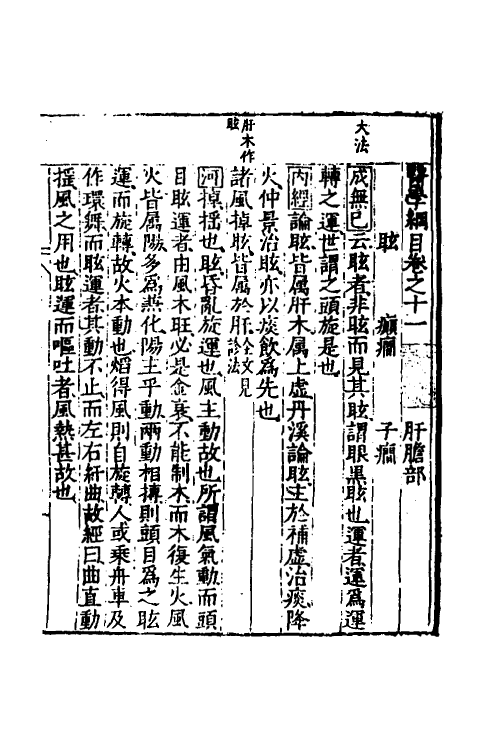 醫學綱目卷之十一
肝膽部
眩　癲癇　子癇
大法
成無已云眩者非眩而見其眩謂眼黑眩也運者運爲運
轉之運世謂之頭旋是也
內經論眩皆属肝木属上虛丹溪論眩主於補虛治痰降
火仲景治眩亦以痰飲為先也
肝木作
眩
諸風掉眩皆属於肝全文見診法
河掉揺也眩昏亂旋運也風主動故也所謂風氣動而頭
目眩運者由風木旺必是金衰不能制木而木復生火風
火皆属陽多為兼化陽主乎動兩動相搏則頭目爲之眩
運而旋轉故火本動也焰得風則自旋轉人或乘舟車及
作環舞而眩運者其動不止而左右紆曲故經曰曲直動
揺風之用也眩運而嘔吐者風熱甚故也